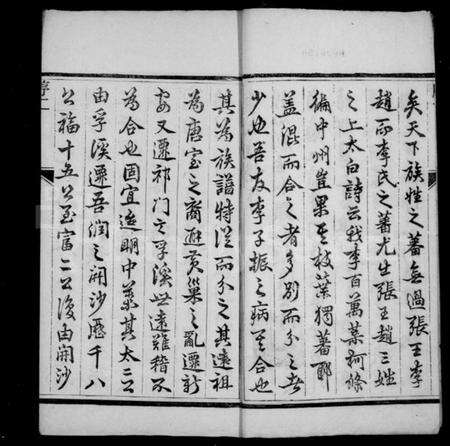 矣天下族性之蕃無過張王李
趙而李氏之蕃尤生張王趙三姓
之上太白詩云我李百萬葉柯條
徧中州豈果其枝葉獨蕃耶
盖混而合之者多別而分之者
少也吾友李子振之病其合也
其為族譜特從而分之其遠祖
為唐室之裔避黃巢之亂遷新
安又遷祁門之孚溪世遠難稽不
為合也固宜迨明中葉其太二公
由孚溪遷吾潤之開沙歷千八
公福十五公至富二公復由開沙
序二